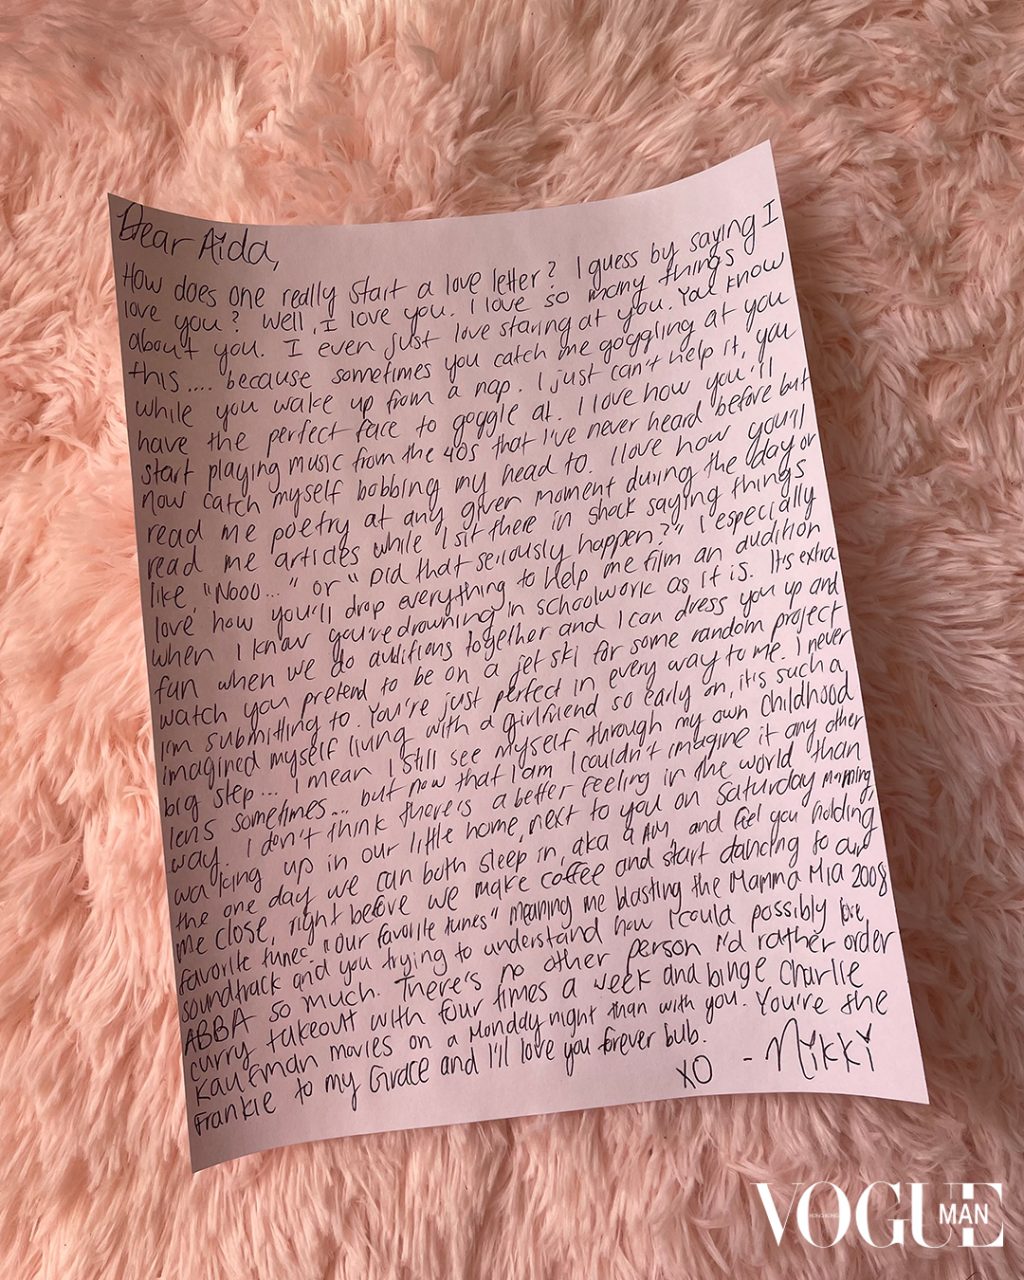 Dear Aida,
How does one really start a love letter? I guess by saying I
love you? Well, I love you. I love so many things
about you. I even just love staring at you. You know
this.... because sometimes you catch me goggling at you
while you wake up from a nap. I just can't help it, you
have the perfect face to goggle at. I love how you'll
start playing music from the 40s that I've never heard before but
now catch myself bobbing my head to. I love how you'll
read me poetry at any given moment during the day or
read me articles while I sit there in shock saying things
like, "Nooo..." or "Did that seriously happen?" I especially
love how you'll drop everything to help me film an audition
when I know you're drowning in schoolwork as it is. It's extra
fun when we do auditions together and I can dress you up and
watch you pretend to be on a jet ski for some random project
I'm submitting to. You're just perfect in every way to me. I never
imagined myself living with a girlfriend so early on, it's such a
big step... I mean I still see myself through my own childhood
lens sometimes... but now that I am I couldn't imagine it any other
way. I don't think there's a better feeling in the world than
waking up in our little home, next to you on Saturday morning
the one day we can both sleep in, aka 9 AM, and feel you holding
me close, right before we make coffee and start dancing to our
favorite tunes. "Our favorite tunes" meaning me blasting the Mamma Mia 2008
soundtrack and you trying to understand how I could possibly love
ABBA so much. There's no other person I'd rather order
curry takeout with four times a week and binge Charlie
Kaufman movies on a Monday night than with you. You're the
Frankie to my Grace and I'll love you forever bub.
XO - Nikki
VOGUE
HONG KONG
MAN